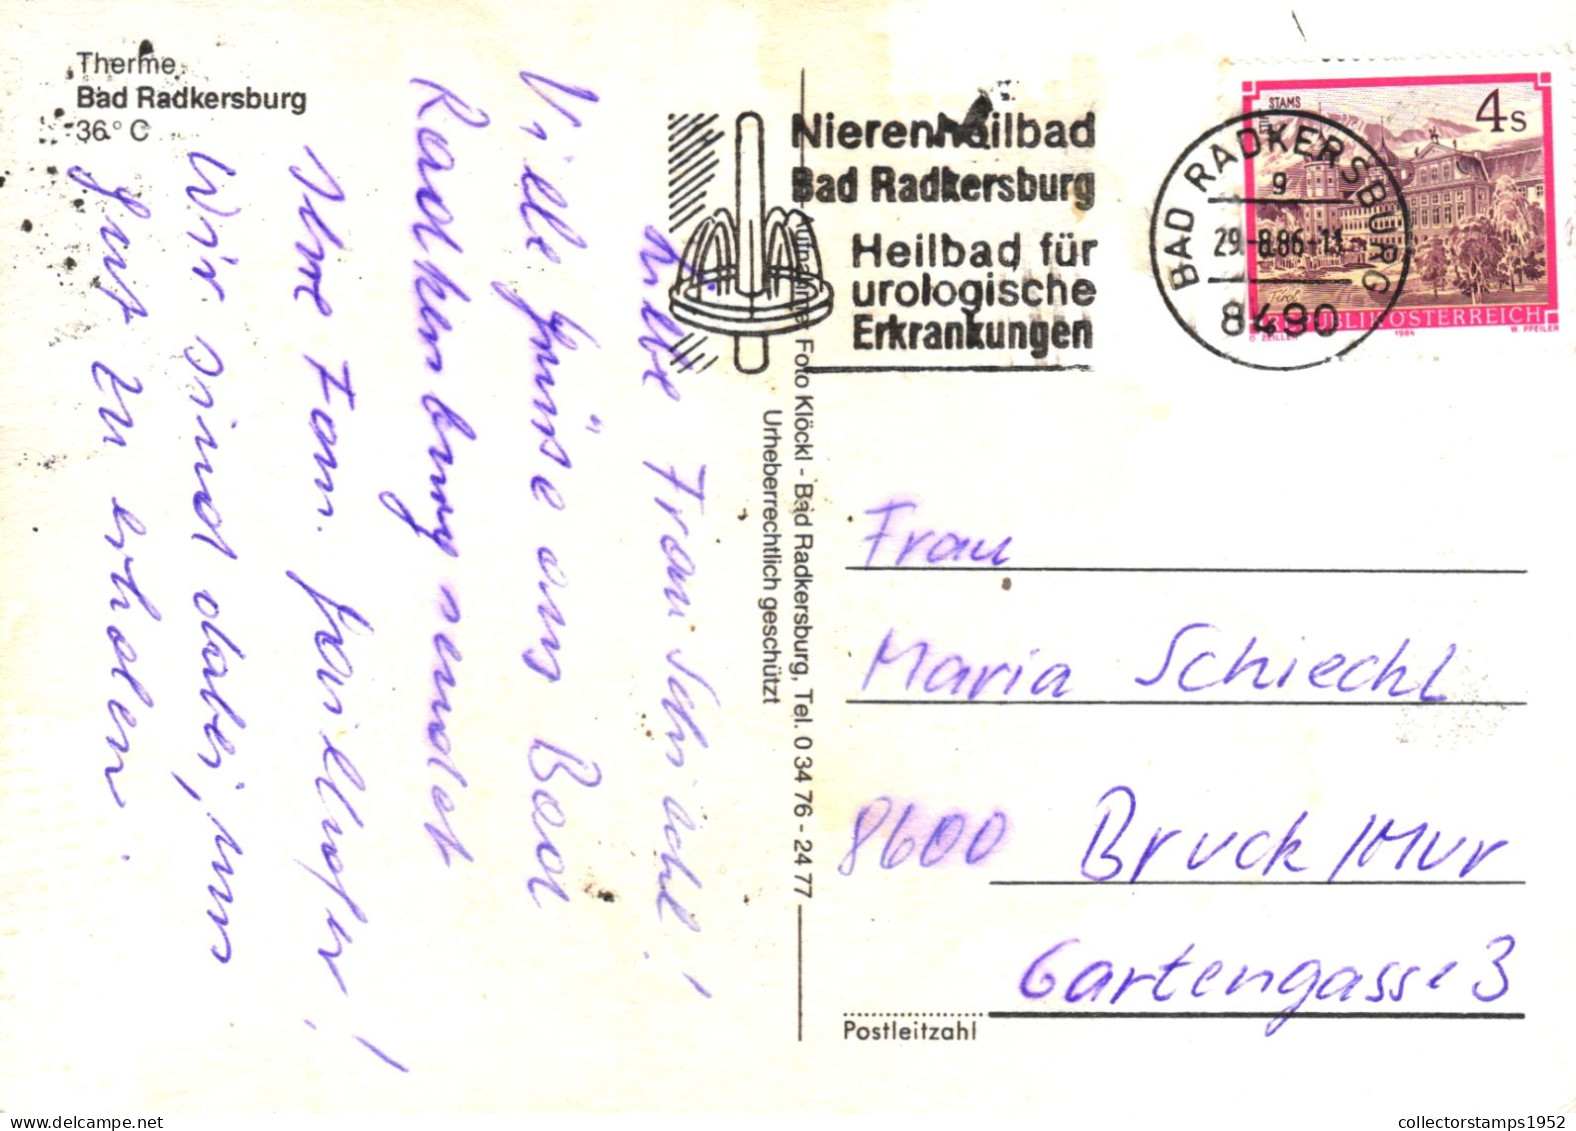 Therme
Bad Radkersburg
36° C
Liebe Frau Schiechl!
Viele Grüße aus Bad
Radkersburg sendet
Ihre Fam.
Wir sind dabei, uns
gut zu erholen.
Aufnahme: Foto Klöckl - Bad Radkersburg, Tel. 0 34 76 - 24 77
Urheberrechtlich geschützt
Nierenheilbad
Bad Radkersburg
Heilbad für
urologische
Erkrankungen
BAD RADKERSBURG
9
29.-8.86-11
8490
STIFT STAMS
4 S
Tirol
REPUBLIK ÖSTERREICH
O. ZEILLER 1984 W. PFEILER
Frau
Maria Schiechl
8600 Bruck/Mur
Gartengasse 3
Postleitzahl
collectorstamps1952